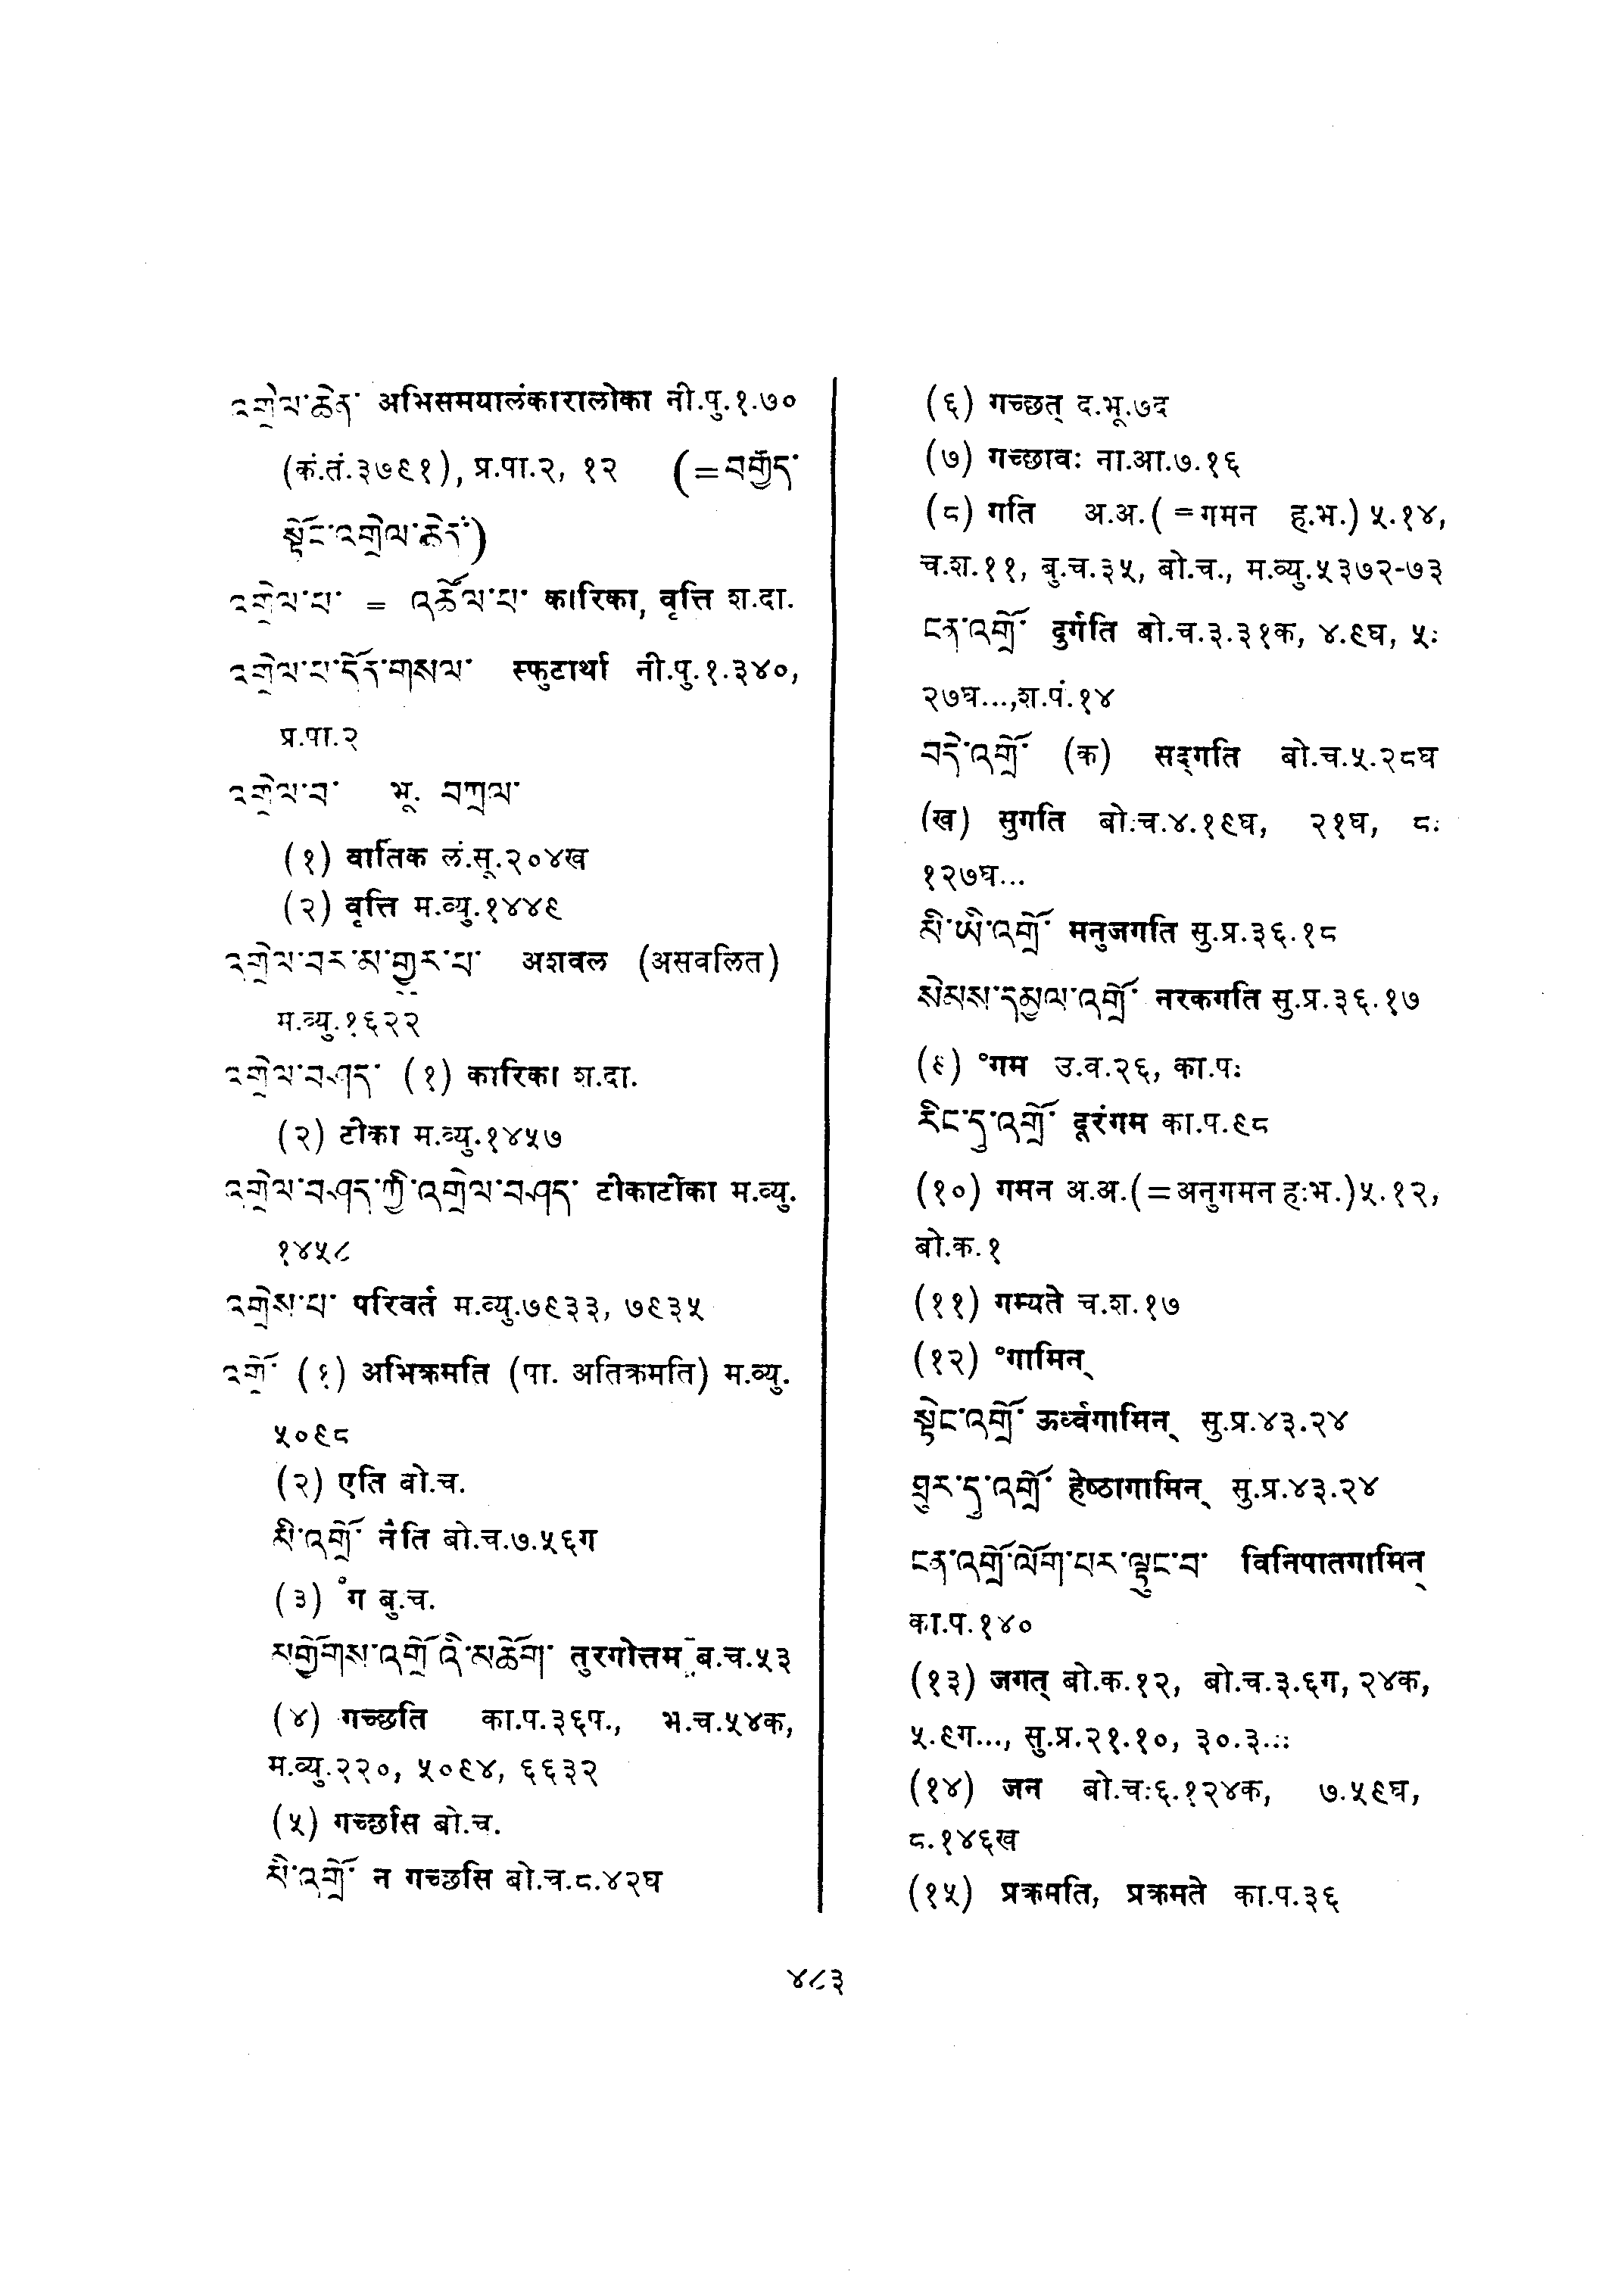 འགྲེལ་ཆེན་ अभिसमयालंकारालोका नी.पु.१.७०
(कं.तं.३७९१), प्र.पा.२, १२ (=བརྒྱད་
སྟོང་འགྲེལ་ཆེན་)
འགྲེལ་པ་ = འཆོལ་པ་ कारिका, वृत्ति श.दा.
འགྲེལ་པ་དོན་གསལ་ स्फुटार्था नी.पु.१.३४०,
प्र.पा.२
འགྲེལ་བ་ भू. བཀྲལ་
(१) वार्तिक लं.सू.२०४ख
(२) वृत्ति म.व्यु.१४४९
འགྲེལ་བར་མ་གྱུར་པ་ अशवल (असवलित)
म.व्यु.१६२२
འགྲེལ་བཤད་ (१) कारिका श.दा.
(२) टीका म.व्यु.१४५७
འགྲེལ་བཤད་ཀྱི་འགྲེལ་བཤད་ टीकाटीका म.व्यु.
१४५८
འགྲེས་པ་ परिवर्त म.व्यु.७९३३, ७९३५
འགྲོ་ (१) अभिक्रमति (पा. अतिक्रमति) म.व्यु.
५०९८
(२) एति बो.च.
མི་འགྲོ་ नैति बो.च.७.५६ग
(३) °ग बु.च.
མགྱོགས་འགྲོ་འི་མཆོག་ तुरगोत्तम बु.च.५३
(४) गच्छति का.प.३६प., भ.च.५४क,
म.व्यु.२२०, ५०९४, ६६३२
(५) गच्छसि बो.च.
མི་འགྲོ་ न गच्छसि बो.च.८.४२घ
(६) गच्छत् द.भू.७द
(७) गच्छावः ना.आ.७.१६
(८) गति अ.अ.(=गमन ह.भ.) ५.१४,
च.श.११, बु.च.३५, बो.च., म.व्यु.५३७२-७३
ངན་འགྲོ་ दुर्गति बो.च.३.३१क, ४.९घ, ५.
२७घ...,श.पं.१४
བདེ་འགྲོ་ (क) सद्गति बो.च.५.२८घ
(ख) सुगति बो.च.४.१९घ, २१घ, ८.
१२७घ...
མི་ཡི་འགྲོ་ मनुजगति सु.प्र.३६.१८
སེམས་དམྱལ་འགྲོ་ नरकगति सु.प्र.३६.१७
(९) °गम उ.व.२६, का.प.
རིང་དུ་འགྲོ་ दूरंगम का.प.९८
(१०) गमन अ.अ.(=अनुगमन ह.भ.)५.१२,
बो.क.१
(११) गम्यते च.श.१७
(१२) °गामिन्
སྟེང་འགྲོ་ ऊर्ध्वगामिन् सु.प्र.४३.२४
ཐུར་དུ་འགྲོ་ हेष्ठागामिन् सु.प्र.४३.२४
ངན་འགྲོ་ལོག་པར་ལྟུང་བ་ विनिपातगामिन्
का.प.१४०
(१३) जगत् बो.क.१२, बो.च.३.६ग, २४क,
५.९ग..., सु.प्र.२१.१०, ३०.३...
(१४) जन बो.च.६.१२४क, ७.५९घ,
८.१४६ख
(१५) प्रक्रमति, प्रक्रमते का.प.३६
४८३